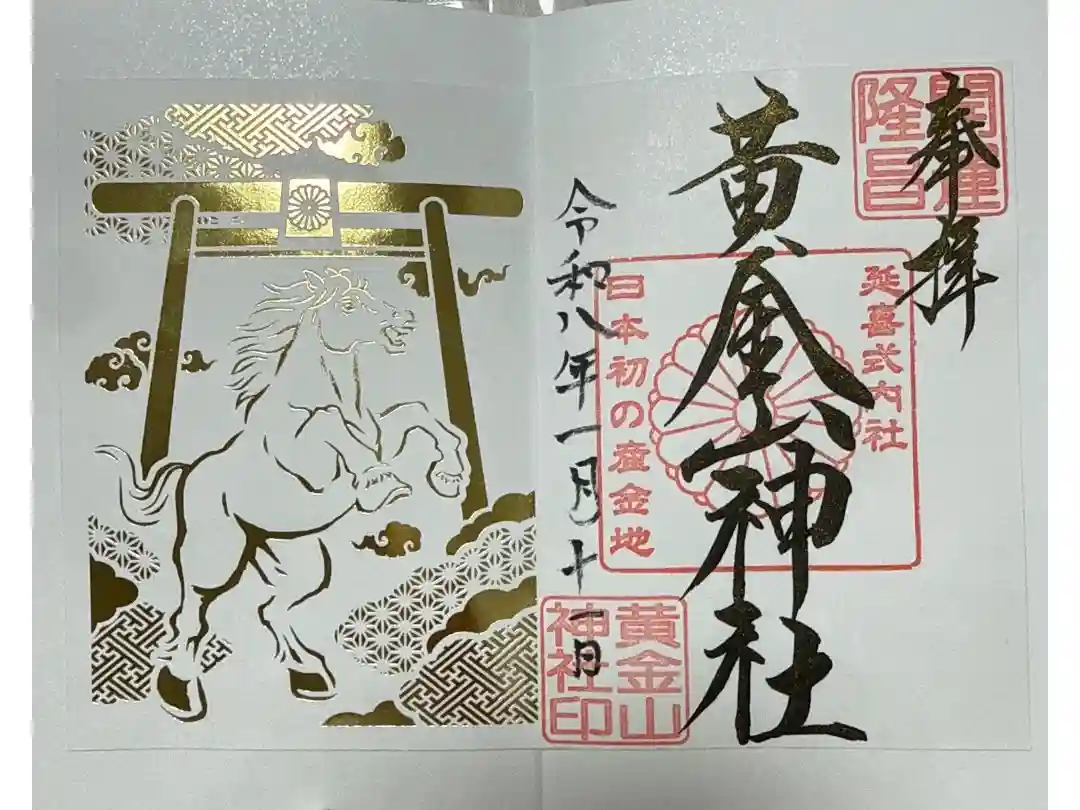 奉拝
開運
隆昌
延喜式内社
黄金山神社
日本初の産金地
黄金山
神社印
令和八年一月十一日